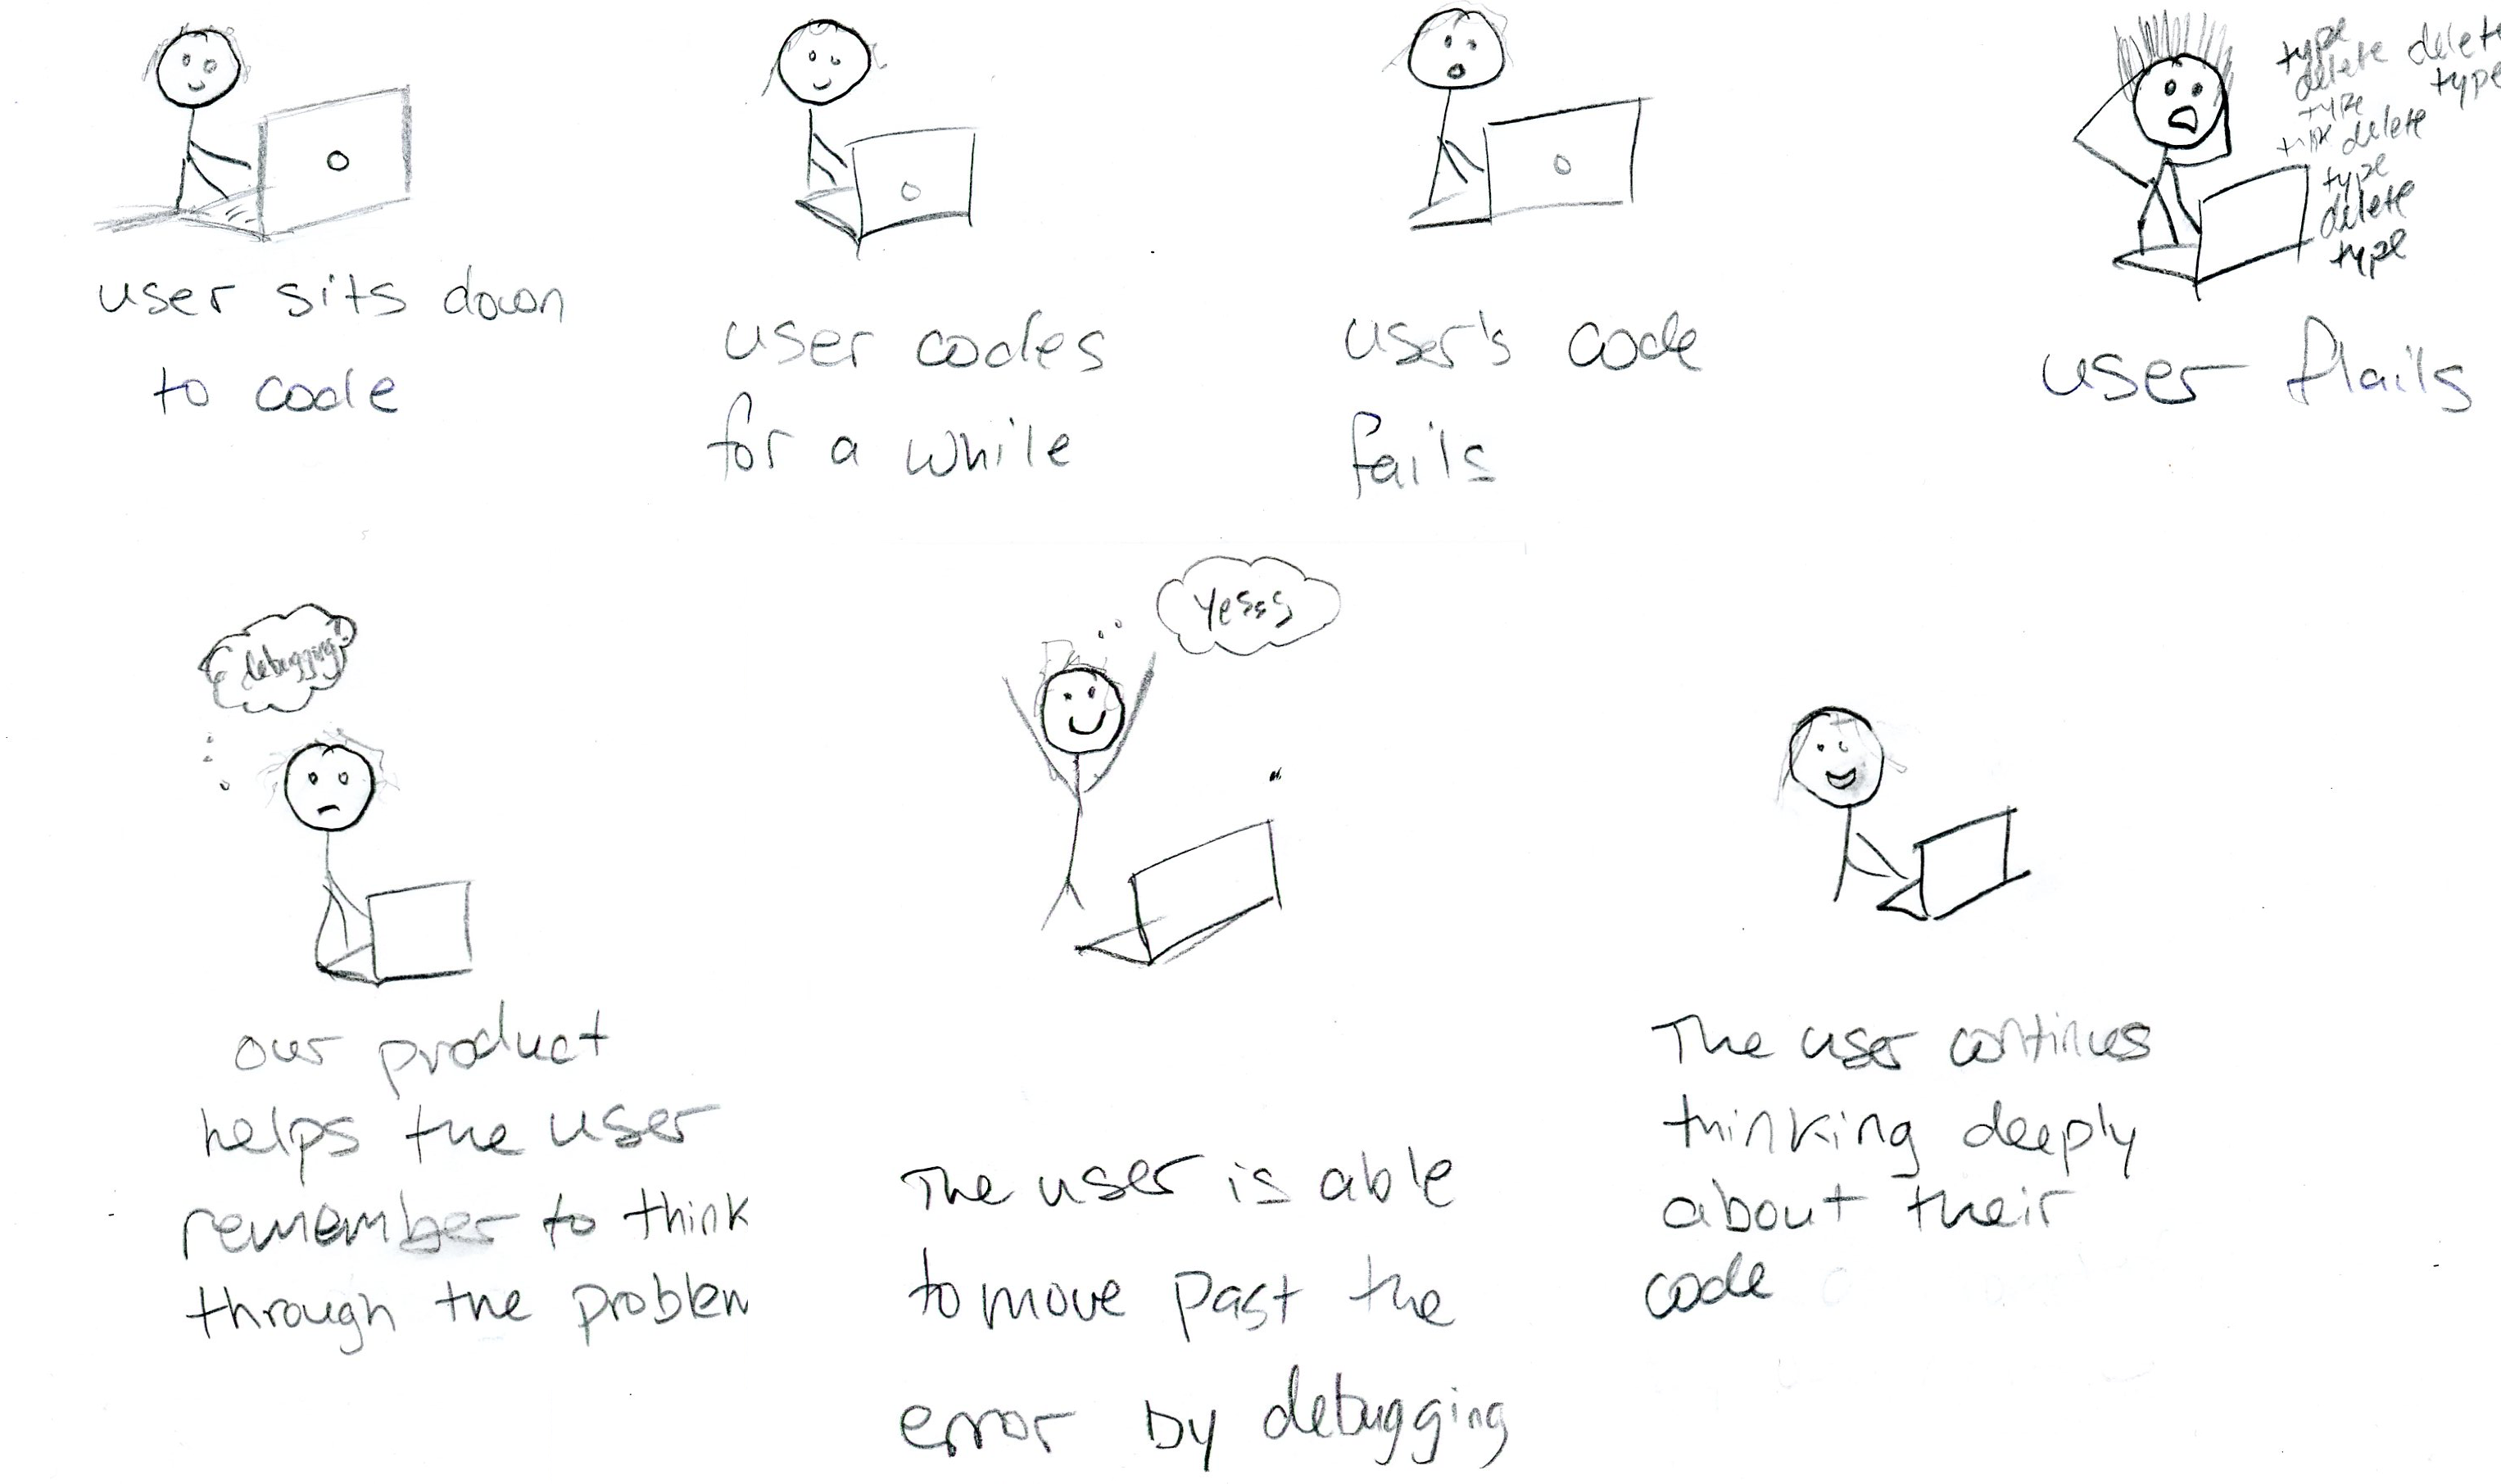 user sits down
to code
user codes
for a while
user's code
fails
type
delete delete
type type
type delete
type
delete
type
user flails
debugging
our product
helps the user
remember to think
through the problem
yesss
The user is able
to move past the
error by debugging
The user continues
thinking deeply
about their
code